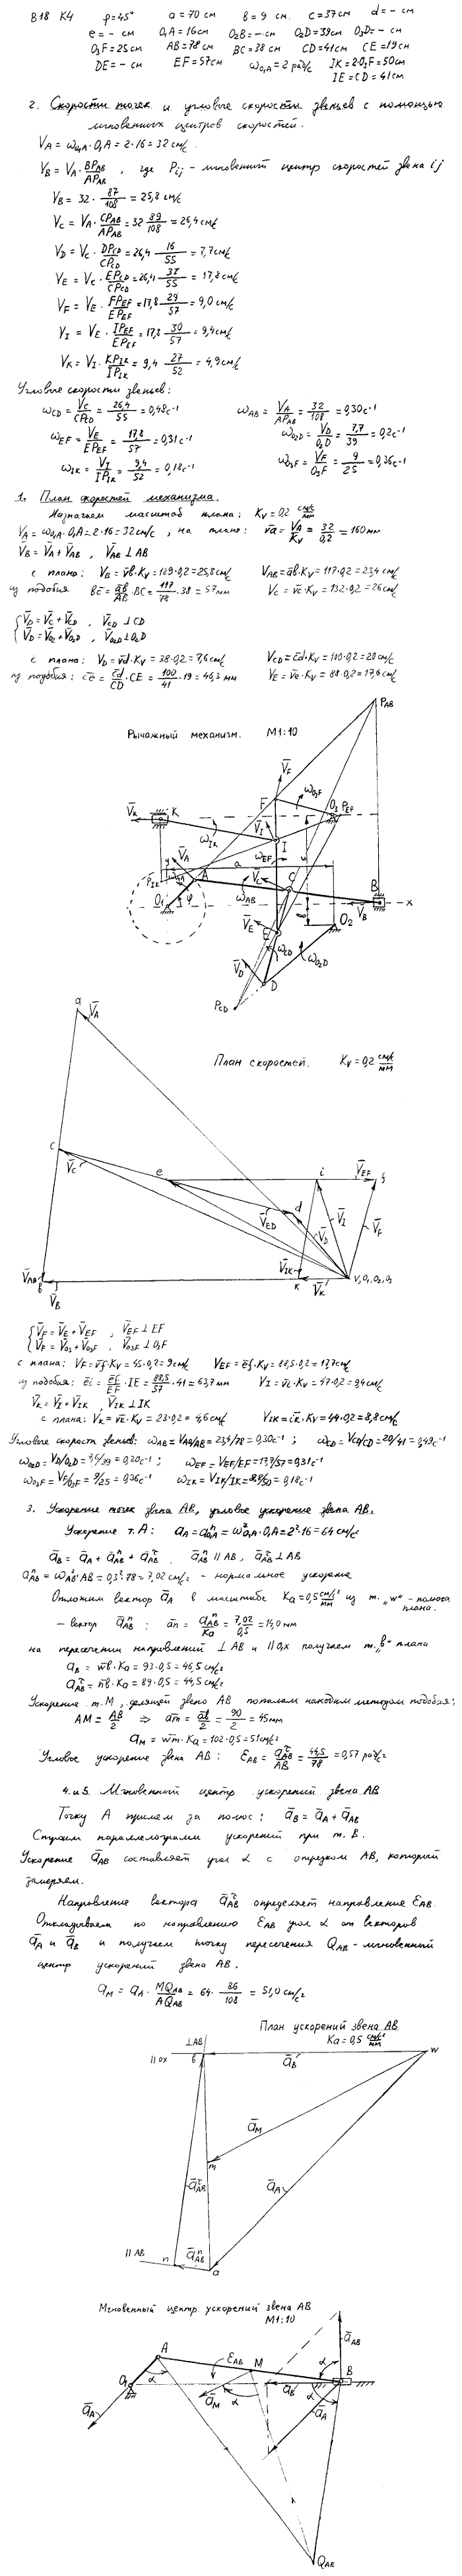 В18 К4 φ=45° a=70 см b=9 см. c=37см d=– см
e=– см O₁A=16см O₂B=– см O₂D=39см O₃D=– см
O₃F=25см AB=78см BC=38см CD=41см CE=19см
DE=– см EF=57см ω_O₁A=2 рад/с IK=2·O₃F=50см
IE=CD=41см
2. Скорости точек и угловые скорости звеньев с помощью
мгновенных центров скоростей.
V_A=ω_O₁A·O₁A=2·16=32см/с
V_B=V_A·BP_AB/AP_AB, где P_ij – мгновенный центр скоростей звена ij
V_B=32·87/108=25,8 см/с
V_C=V_A·CP_AB/AP_AB=32·89/108=26,4см/с
V_D=V_C·DP_CD/CP_CD=26,4·16/55=7,7см/с
V_E=V_C·EP_CD/CP_CD=26,4·37/55=17,8см/с
V_F=V_E·FP_EF/EP_EF=17,8·29/57=9,0см/с
V_I=V_E·IP_EF/EP_EF=17,8·30/57=9,4см/с
V_K=V_I·KP_IK/IP_IK=9,4·27/52=4,9см/с
Угловые скорости звеньев:
ω_CD=V_C/CP_CD=26,4/55=0,48с⁻¹ ω_AB=V_A/AP_AB=32/108=0,30с⁻¹
ω_EF=V_E/EP_EF=17,8/57=0,31с⁻¹ ω_O₂D=V_D/O₂D=7,7/39=0,2с⁻¹
ω_IK=V_I/IP_IK=9,4/52=0,18с⁻¹ ω_O₃F=V_F/O₃F=9/25=0,36с⁻¹
1. План скоростей механизма.
Назначаем масштаб плана: K_V=0,2 см/с/мм
V_A=ω_O₁A·O₁A=2·16=32см/с, на плане: v̄a=V_A/K_V=32/0,2=160мм
V̄_B=V̄_A+V̄_AB, V̄_AB⊥AB
с плана: V_B=v̄b·K_V=129·0,2=25,8см/с V_AB=āb·K_V=117·0,2=23,4 см/с
из подобия b̄c=āb/AB·BC=117/78·38=57мм V_C=v̄c·K_V=132·0,2=26см/с
{V̄_D=V̄_C+V̄_CD, V̄_CD⊥CD
{V̄_D=V̄_O₂+V̄_O₂D, V̄_O₂D⊥O₂D
с плана: V_D=v̄d·K_V=38·0,2=7,6см/с V_CD=c̄d·K_V=100·0,2=20 см/с
из подобия: c̄e=c̄d/CD·CE=100/41·19=46,3 мм V_E=v̄e·K_V=88·0,2=17,6см/с
Рычажный механизм. М1:10
P_AB
V̄_F
F ω_O₃F O₃ P_EF
V̄_K K V̄_I
ω_IK I
y V̄_A a ω_EF c
P_IK A V̄_C C B
O₁ φ ω_AB b V̄_B x
V̄_E E O₂
ω_CD ω_O₂D
V̄_D D
P_CD
a V̄_A
План скоростей. K_V=0,2 см/с/мм
c V̄_C e i V̄_EF f
V̄_ED d V̄_D V̄_I V̄_F
V̄_IK
V̄_AB b V̄_B K V̄_K V,O₁,O₂,O₃
{V̄_F=V̄_E+V̄_EF, V̄_EF⊥EF
{V̄_F=V̄_O₃+V̄_O₃F, V̄_O₃F⊥O₃F
с плана: V_F=v̄f·K_V=45·0,2=9см/с V_EF=ēf·K_V=88,5·0,2=17,7см/с
из подобия: ēi=ēf/EF·IE=88,5/57·41=63,7мм V_I=v̄i·K_V=47·0,2=9,4см/с
V̄_K=V̄_I+V̄_IK, V̄_IK⊥IK
с плана: V_K=v̄к·K_V=23·0,2=4,6см/с V_IK=īк·K_V=44·0,2=8,8см/с
Угловые скорости звеньев: ω_AB=V_AB/AB=23,4/78=0,30с⁻¹ ω_CD=V_CD/CD=20/41=0,49с⁻¹
ω_O₂D=V_D/O₂D=7,6/39=0,20с⁻¹ ω_EF=V_EF/EF=17,7/57=0,31с⁻¹
ω_O₃F=V_F/O₃F=9/25=0,36с⁻¹ ω_IK=V_IK/IK=8,8/50=0,18с⁻¹
3. Ускорение точек звена AB, угловое ускорение звена AB.
Ускорение т.А: a_A=aⁿ_O₁A=ω²_O₁A·O₁A=2²·16=64см/с²
ā_B=ā_A+āⁿ_AB+ā^τ_AB, āⁿ_AB∥AB, ā^τ_AB⊥AB
aⁿ_AB=ω²_AB·AB=0,3²·78=7,02 см/с² – нормальное ускорение
Отложим вектор ā_A в масштабе K_a=0,5см/с²/мм из т. „w" – полюса
плана.
– вектор āⁿ_AB: ān=aⁿ_AB/K_a=7,02/0,5=14,0 мм
на пересечении направлений ⊥AB и ∥Ox получаем т.„b" плана
a_B=w̄b·K_a=93·0,5=46,5см/с²
a^τ_AB=n̄b·K_a=89·0,5=44,5см/с²
Ускорение т.М, делящей звено AB пополам находим методом подобия:
AM=AB/2 ⇒ ām=āb/2=90/2=45мм
a_M=w̄m·K_a=102·0,5=51см/с²
Угловое ускорение звена AB: ε_AB=a^τ_AB/AB=44,5/78=0,57 рад/с²
4. и 5. Мгновенный центр ускорений звена AB
Точку А примем за полюс: ā_B=ā_A+ā_AB
Строим параллелограмм ускорений при т.В.
Ускорение ā_AB составляет угол α с отрезком AB, который
замеряем.
Направление вектора ā^τ_AB определяет направление ε_AB.
Откладываем по направлению ε_AB угол α от векторов
ā_A и ā_B и получаем точку пересечения Q_AB – мгновенный
центр ускорений звена AB.
a_M=a_A·MQ_AB/AQ_AB=64·86/108=51,0см/с²
План ускорений звена AB
K_a=0,5 см/с²/мм
⊥AB
∥ox b ā_B w
ā_M
m
ā^τ_AB ā_A
∥AB n āⁿ_AB a
Мгновенный центр ускорений звена AB
М1:10
ā_AB
A ε_AB M α B
O₁ α ā_M α ā_B α ā_A
ā_A
Q_AB